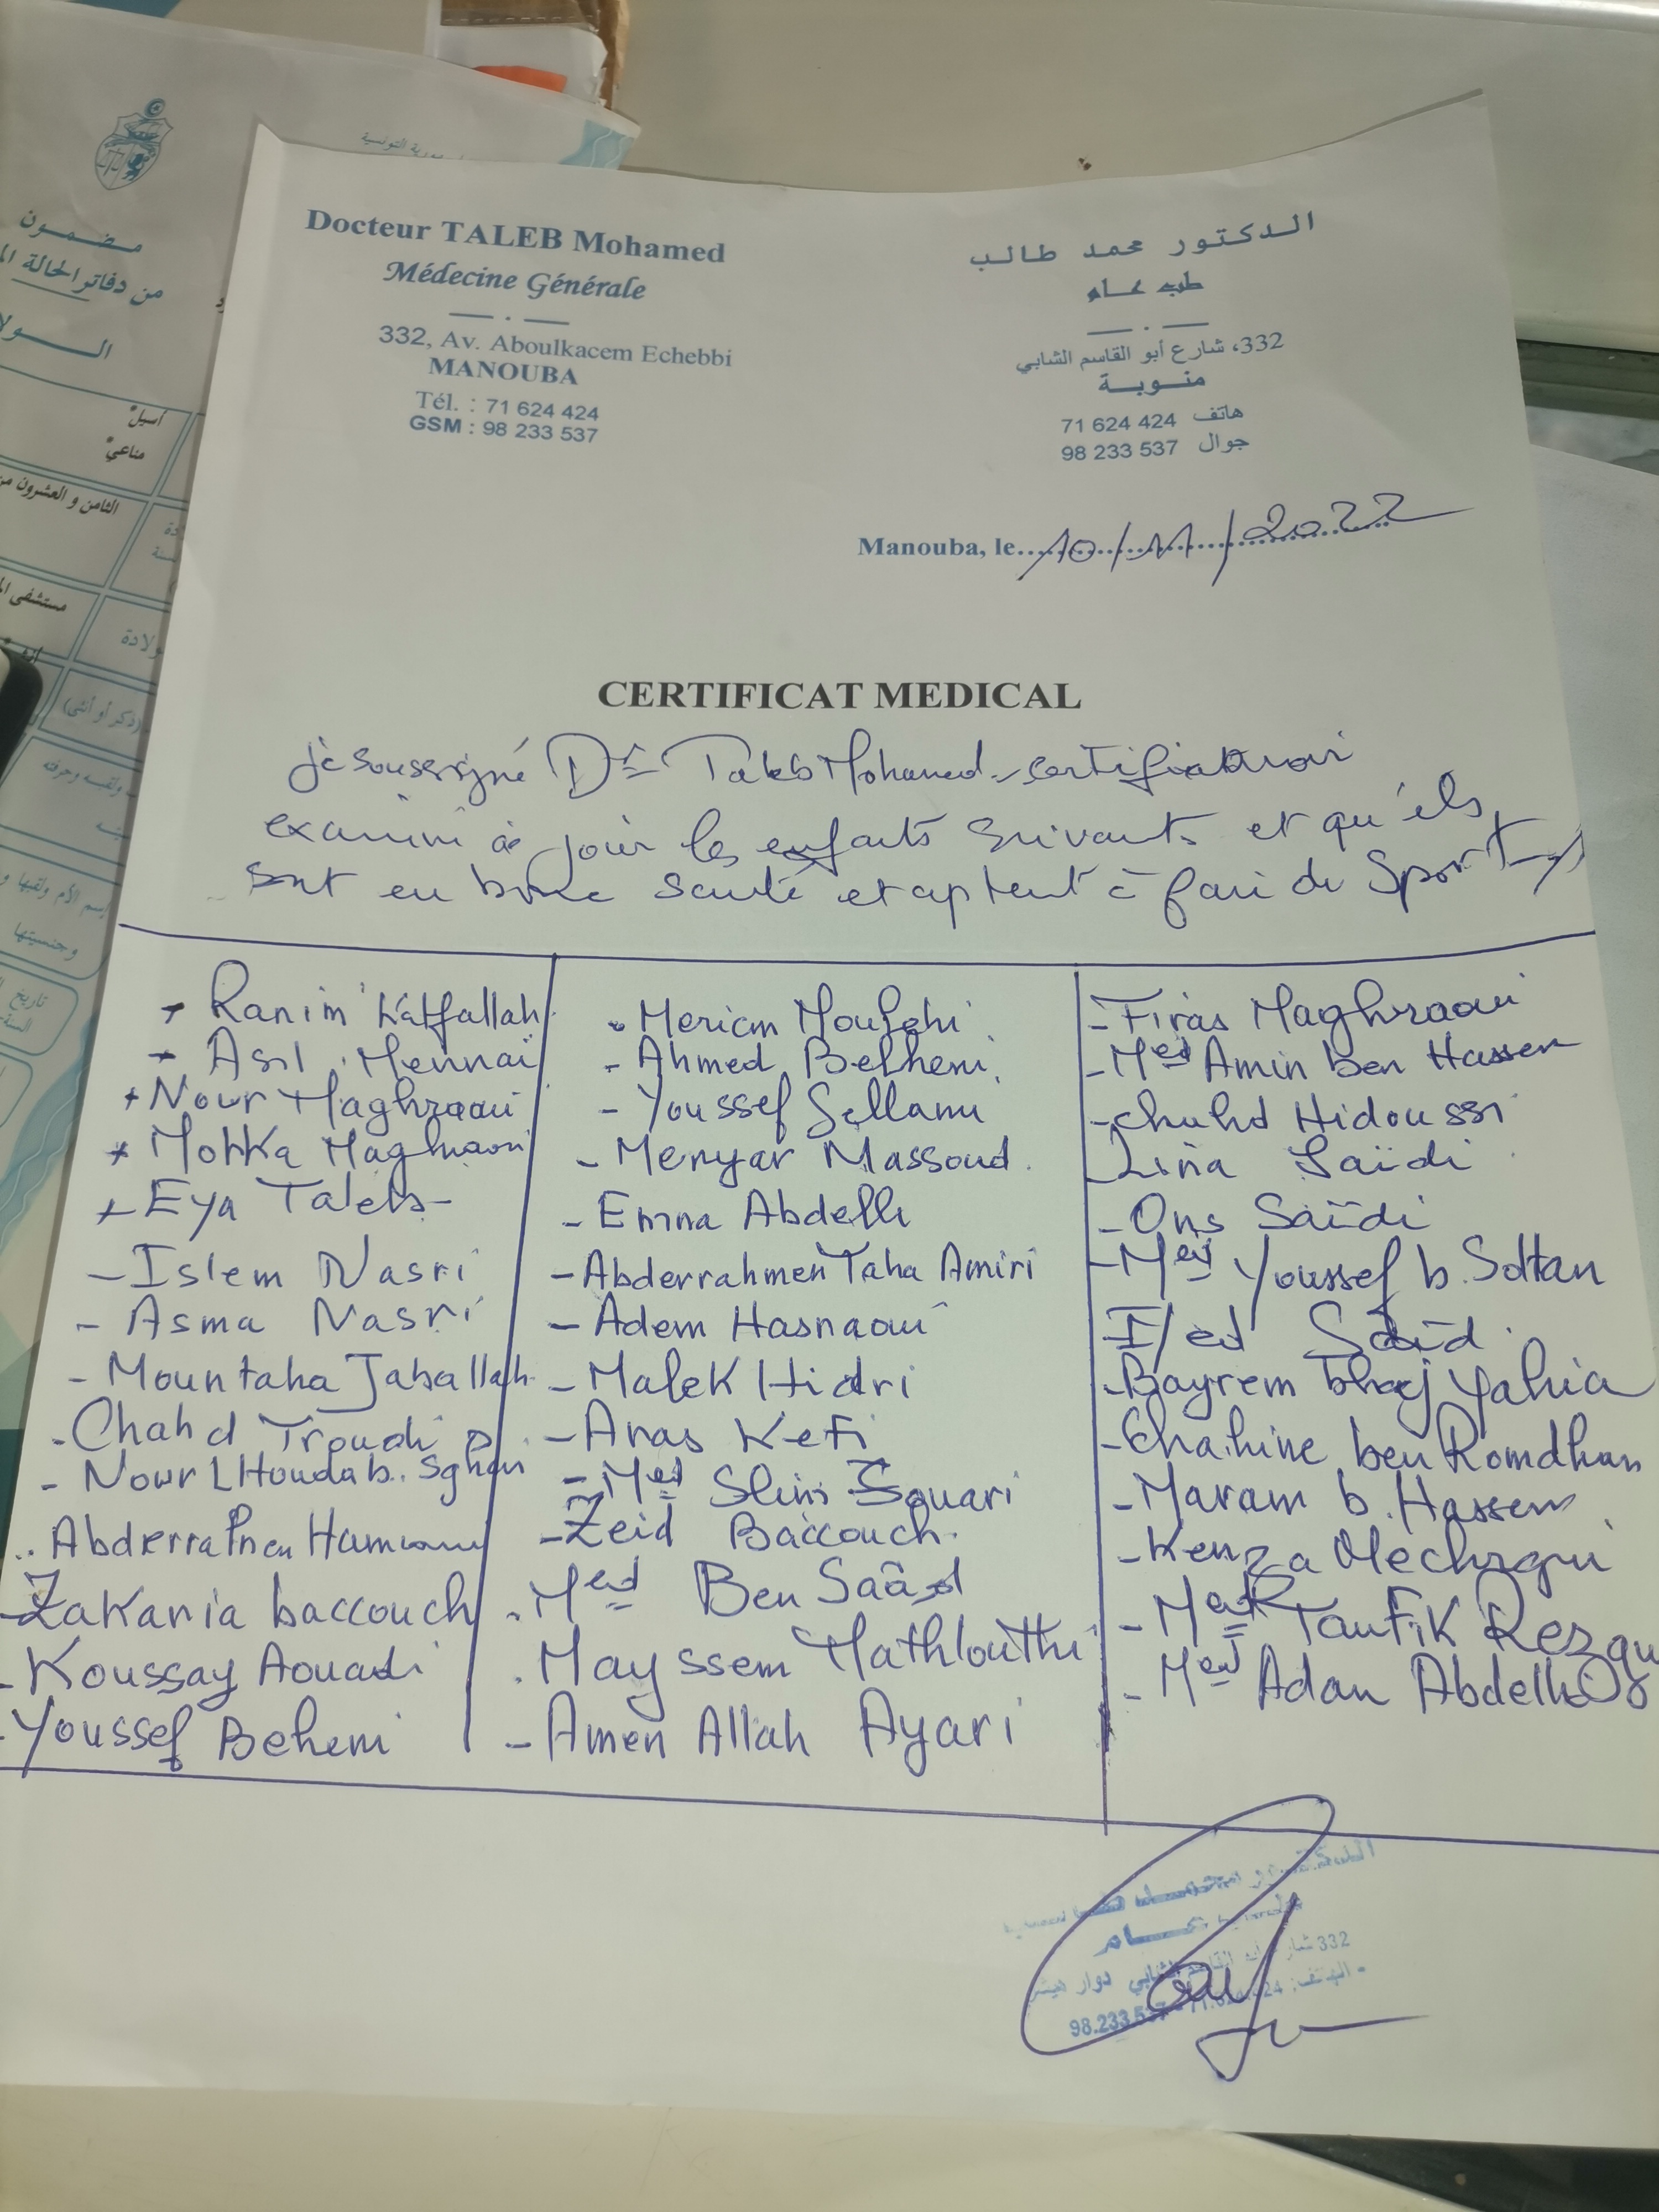 الجمهورية التونسية
مضمون
من دفاتر الحالة
أسيل
مناعي
الثامن و العشرون من
مستشفى
(ذكر أو أنثى)
ولقبه وحرفته
وجنسيتها
تاريخ
Docteur TALEB Mohamed
Médecine Générale
332, Av. Aboulkacem Echebbi
MANOUBA
Tél. : 71 624 424
GSM : 98 233 537
الدكتور محمد طالب
طب عام
332، شارع أبو القاسم الشابي
منوبة
هاتف 71 624 424
جوال 98 233 537
Manouba, le 10/11/2022
CERTIFICAT MEDICAL
Je soussigné Dr Taleb Mohamed certifie avoir
examiné ce jour les enfants suivants et qu'ils
sont en bonne santé et aptent à faire du Sport
+ Ranim Katfallah
+ Asil Mennaï
+ Nour Maghraoui
+ Mohka Maghraoui
+ Eya Taleb
- Islem Nasri
- Asma Nasri
- Mountaha Jaballah
- Chahd Troudi
- Nour L Houda b. Sghair
- Abderrahmen
- Zakaria baccouch
- Koussay Aouadi
- Youssef Belhemi
- Meriem
- Ahmed Belhemi
- Youssef Sellami
- Menyar Massoud
- Emna Abdelli
- Abderrahmen Taha Amiri
- Adem Hasnaoui
- Malek Hidri
- Anas Kefi
- Med Slim Souari
- Zeid Baccouch
- Med Ben Saâd
- Mayssem Mathlouthi
- Amen Allah Ayari
- Firas Maghraoui
- Med Amin ben Hassen
- Chahd Hidoussi
- Lina Saïdi
- Ons Saïdi
- Med Youssef b. Soltan
- Iyed Saïd
- Bayrem bhaj Yahia
- Chahine ben Romdhan
- Maram b. Hassen
- Kenza Mechrgui
- Med Taufik Rezgui
- Med Adam Abdelli
الدكتور محمد طالب
طب عام
332 شارع أبو القاسم الشابي دوار هيشر
الهاتف: 71.624.424 - 98.233.537